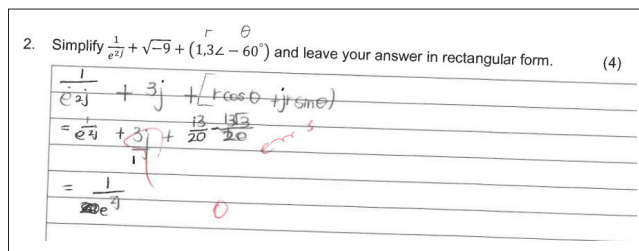 r θ
2. Simplify 1/e^{2j} + √-9 + (1,3∠ - 60°) and leave your answer in rectangular form. (4)
1/e^{2j} + 3j + [rcosθ + jrsinθ)
= 1/e^{2j} + 3j/1 + 13/20 - 13√3/20
= 1/e^{2j}
0